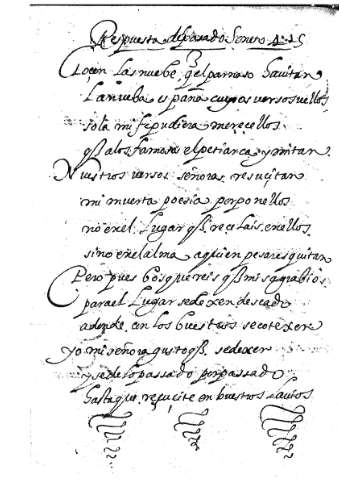 Respuesta del pasado Soneto
Çloçen las nuebe, q el parnaso havitan
La nueba españa cuyos versos vellos
sola mi fe pudiera merecellos
q a los famosos el petrarca ymitan.
Nuestros versos señoras resuçitan
mi muerta poesia por ponellos
no en el Lugar q recelais en ellos
sino en el alma a quien pesares quitan
Pero pues bos quereis q mis agrabios
para el Lugar se dexen deseado
adonde, en los buestros se cotexere
yo mi señora gusto q se dexe
y se de lo passado por passado
hasta que, resuçite en buestros Labios